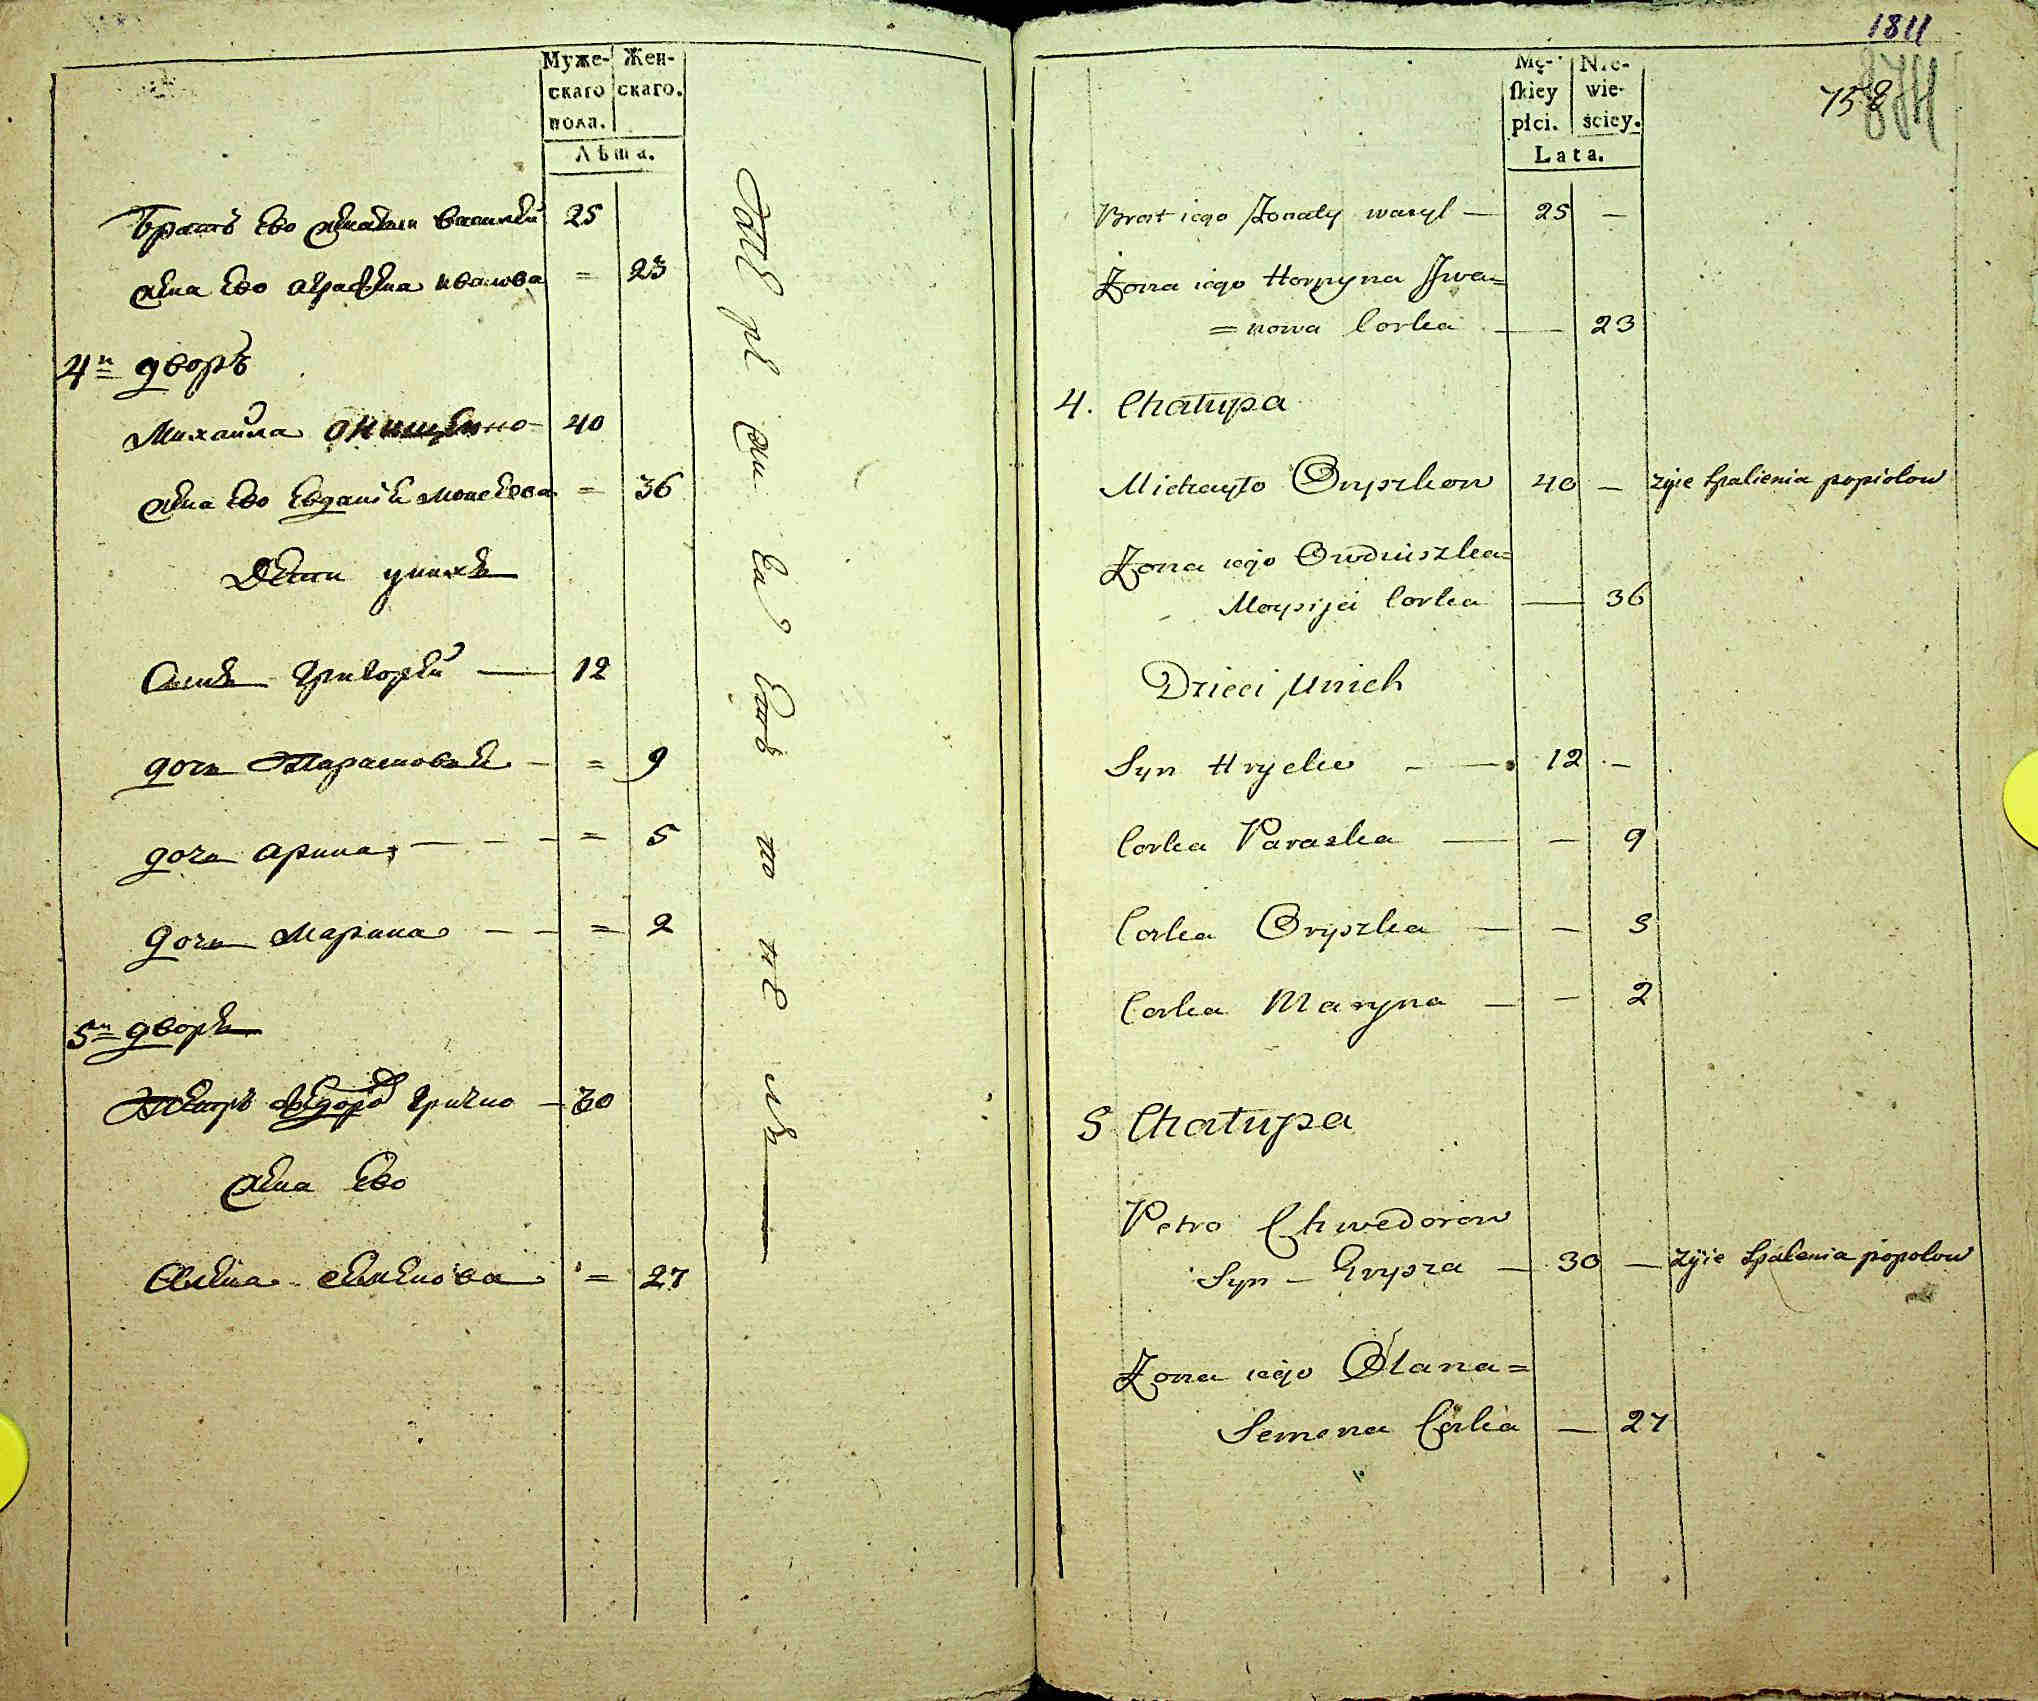 Муже- Жен-
скаго скаго.
пола.
Лѣта.
Братъ ево женатыи василей 25
жена ево аграфена иванова = 23
4й дворъ
Михаила Онищенко 40
жена ево Евдокія моисеева = 36
Дети у них
Синъ Григорей — 12
дочь Парасковея — = 9
дочь арина — — — = 5
дочь Марина — — = 2
5й дворъ
Петръ Федоров Грично — 30
жена ево
Алена семенова = 27
1811
758
Mę- Nie-
skiey wie-
płci. ściey.
Lata.
Brat iego Żonaty wasyl — 25 —
Żona iego Horpyna Iwa=
=nowa Corka — — 23
4. Chałupa
Michayło Onyszkow 40 — żyie spalienia popiołow
Żona iego Owdiuszka=
Moysija Corka — 36
Dzieci unich
Syn Hryćko — — 12 —
Corka Paraska — — 9
Corka Oryszka — — 5
Corka Maryna — — 2
5 Chałupa
Petro Chwedorow
Syn — Hrysza — 30 — żyie spalenia popołow
Żona iego Olana=
Semena Corka — 27